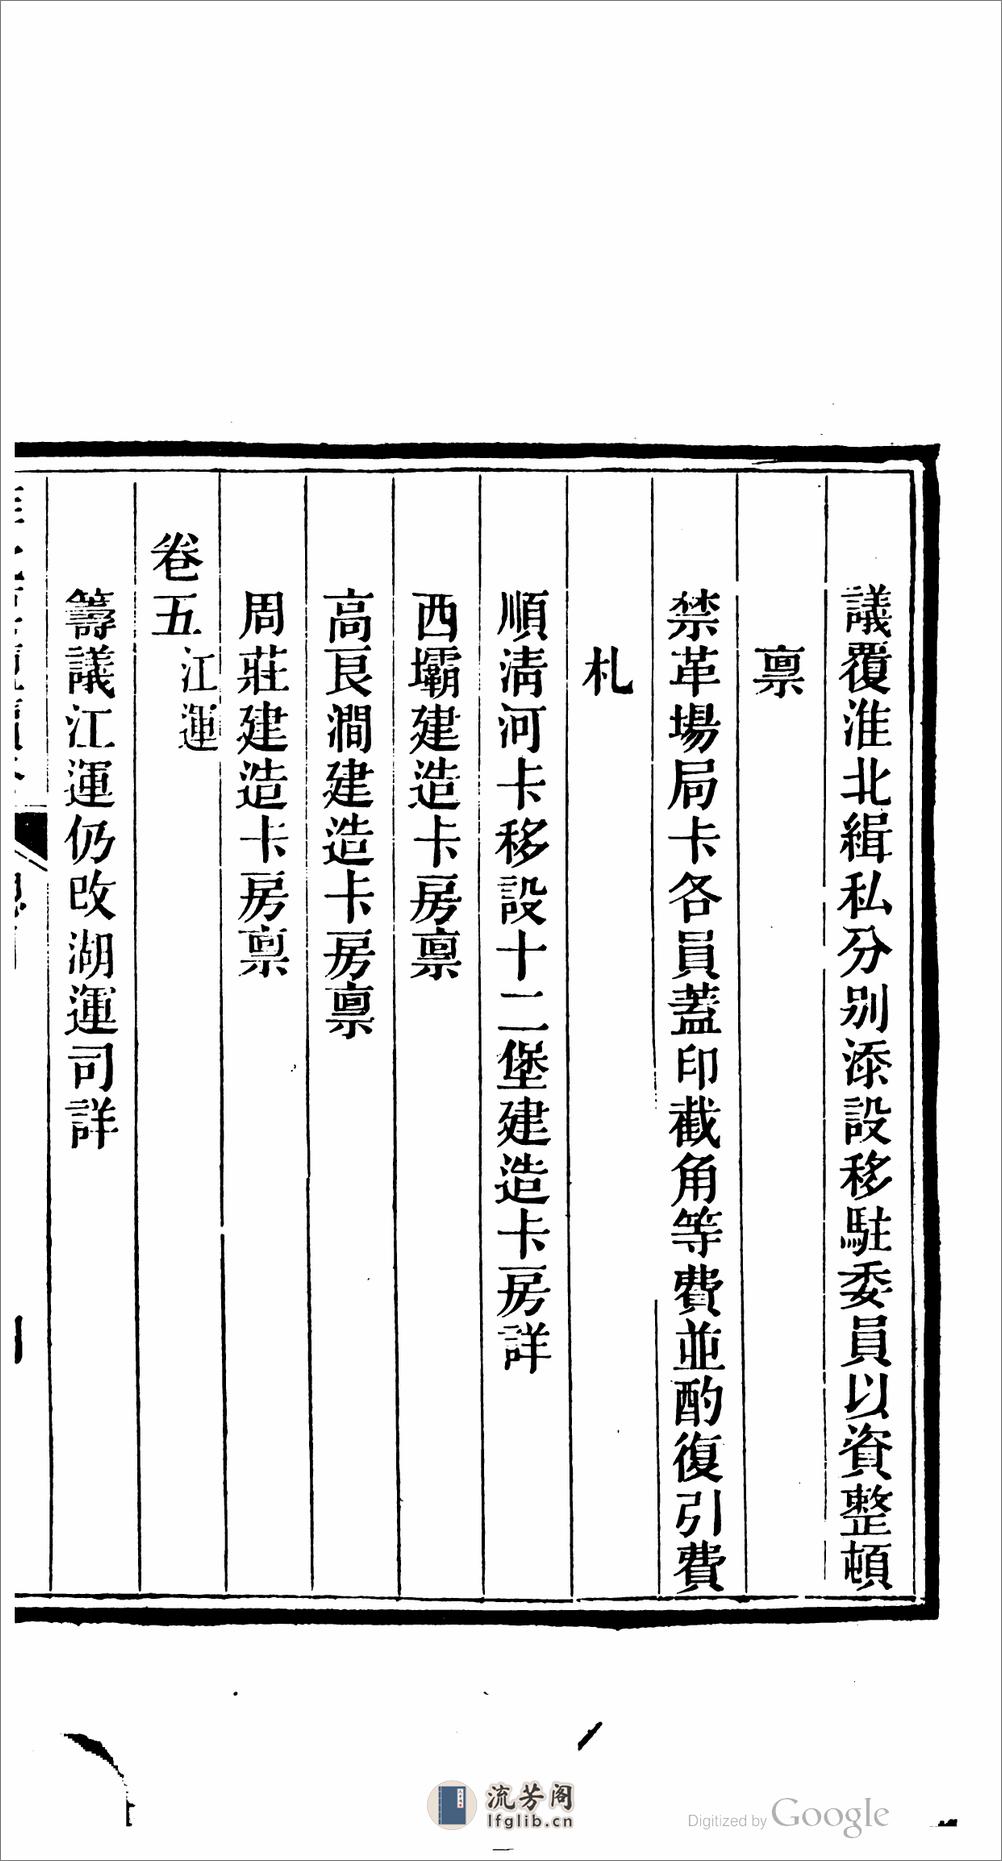 議覆淮北緝私分別添設移駐委員以資整頓
禀
禁革場局卡各員蓋印截角等費並酌復引費
札
順清河卡移設十二堡建造卡房詳
西壩建造卡房禀
高良澗建造卡房禀
周莊建造卡房禀
卷五 江運
籌議江運仍改湖運司詳
流芳阁
lfglib.cn
Digitized by Google